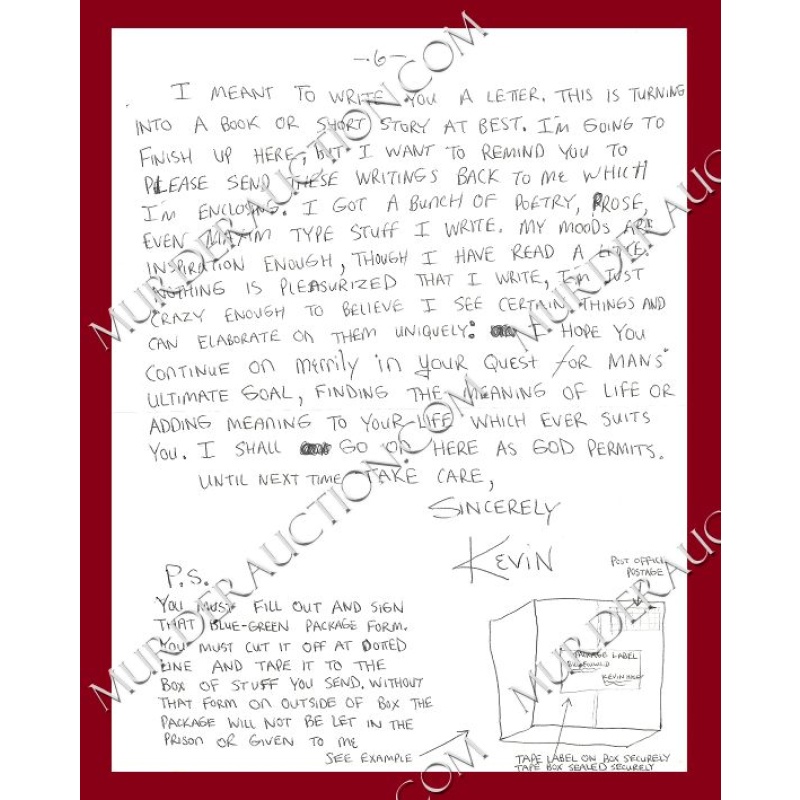 -6-
I MEANT TO WRITE YOU A LETTER. THIS IS TURNING
INTO A BOOK OR SHORT STORY AT BEST. I'M GOING TO
FINISH UP HERE, BUT I WANT TO REMIND YOU TO
PLEASE SEND THESE WRITINGS BACK TO ME WHICH
I'M ENCLOSING. I GOT A BUNCH OF POETRY, PROSE,
EVEN MAXIM TYPE STUFF I WRITE. MY MOODS ARE
INSPIRATION ENOUGH, THOUGH I HAVE READ A
NOTHING IS PLEASURIZED THAT I WRITE, I'M JUST
CRAZY ENOUGH TO BELIEVE I SEE CERTAIN THINGS AND
CAN ELABORATE ON THEM UNIQUELY: I HOPE YOU
CONTINUE ON MERRILY IN YOUR QUEST FOR MANS'
ULTIMATE GOAL, FINDING THE MEANING OF LIFE OR
ADDING MEANING TO YOUR LIFE WHICH EVER SUITS
YOU. I SHALL GO ON HERE AS GOD PERMITS.
UNTIL NEXT TIME TAKE CARE,
SINCERELY
KEVIN
P.S.
YOU MUST FILL OUT AND SIGN
THAT BLUE-GREEN PACKAGE FORM.
YOU MUST CUT IT OFF AT DOTTED
LINE AND TAPE IT TO THE
BOX OF STUFF YOU SEND. WITHOUT
THAT FORM ON OUTSIDE OF BOX THE
PACKAGE WILL NOT BE LET IN THE
PRISON OR GIVEN TO ME
SEE EXAMPLE
POST OFFICE
POSTAGE
PACKAGE LABEL
KEVIN
TAPE LABEL ON BOX SECURELY
TAPE BOX SEALED SECURELY
MURDERAUCTION.COM
MURDERAUCTION.COM
MURDERAUCTION.COM
MURDERAUC
MURDERAUC